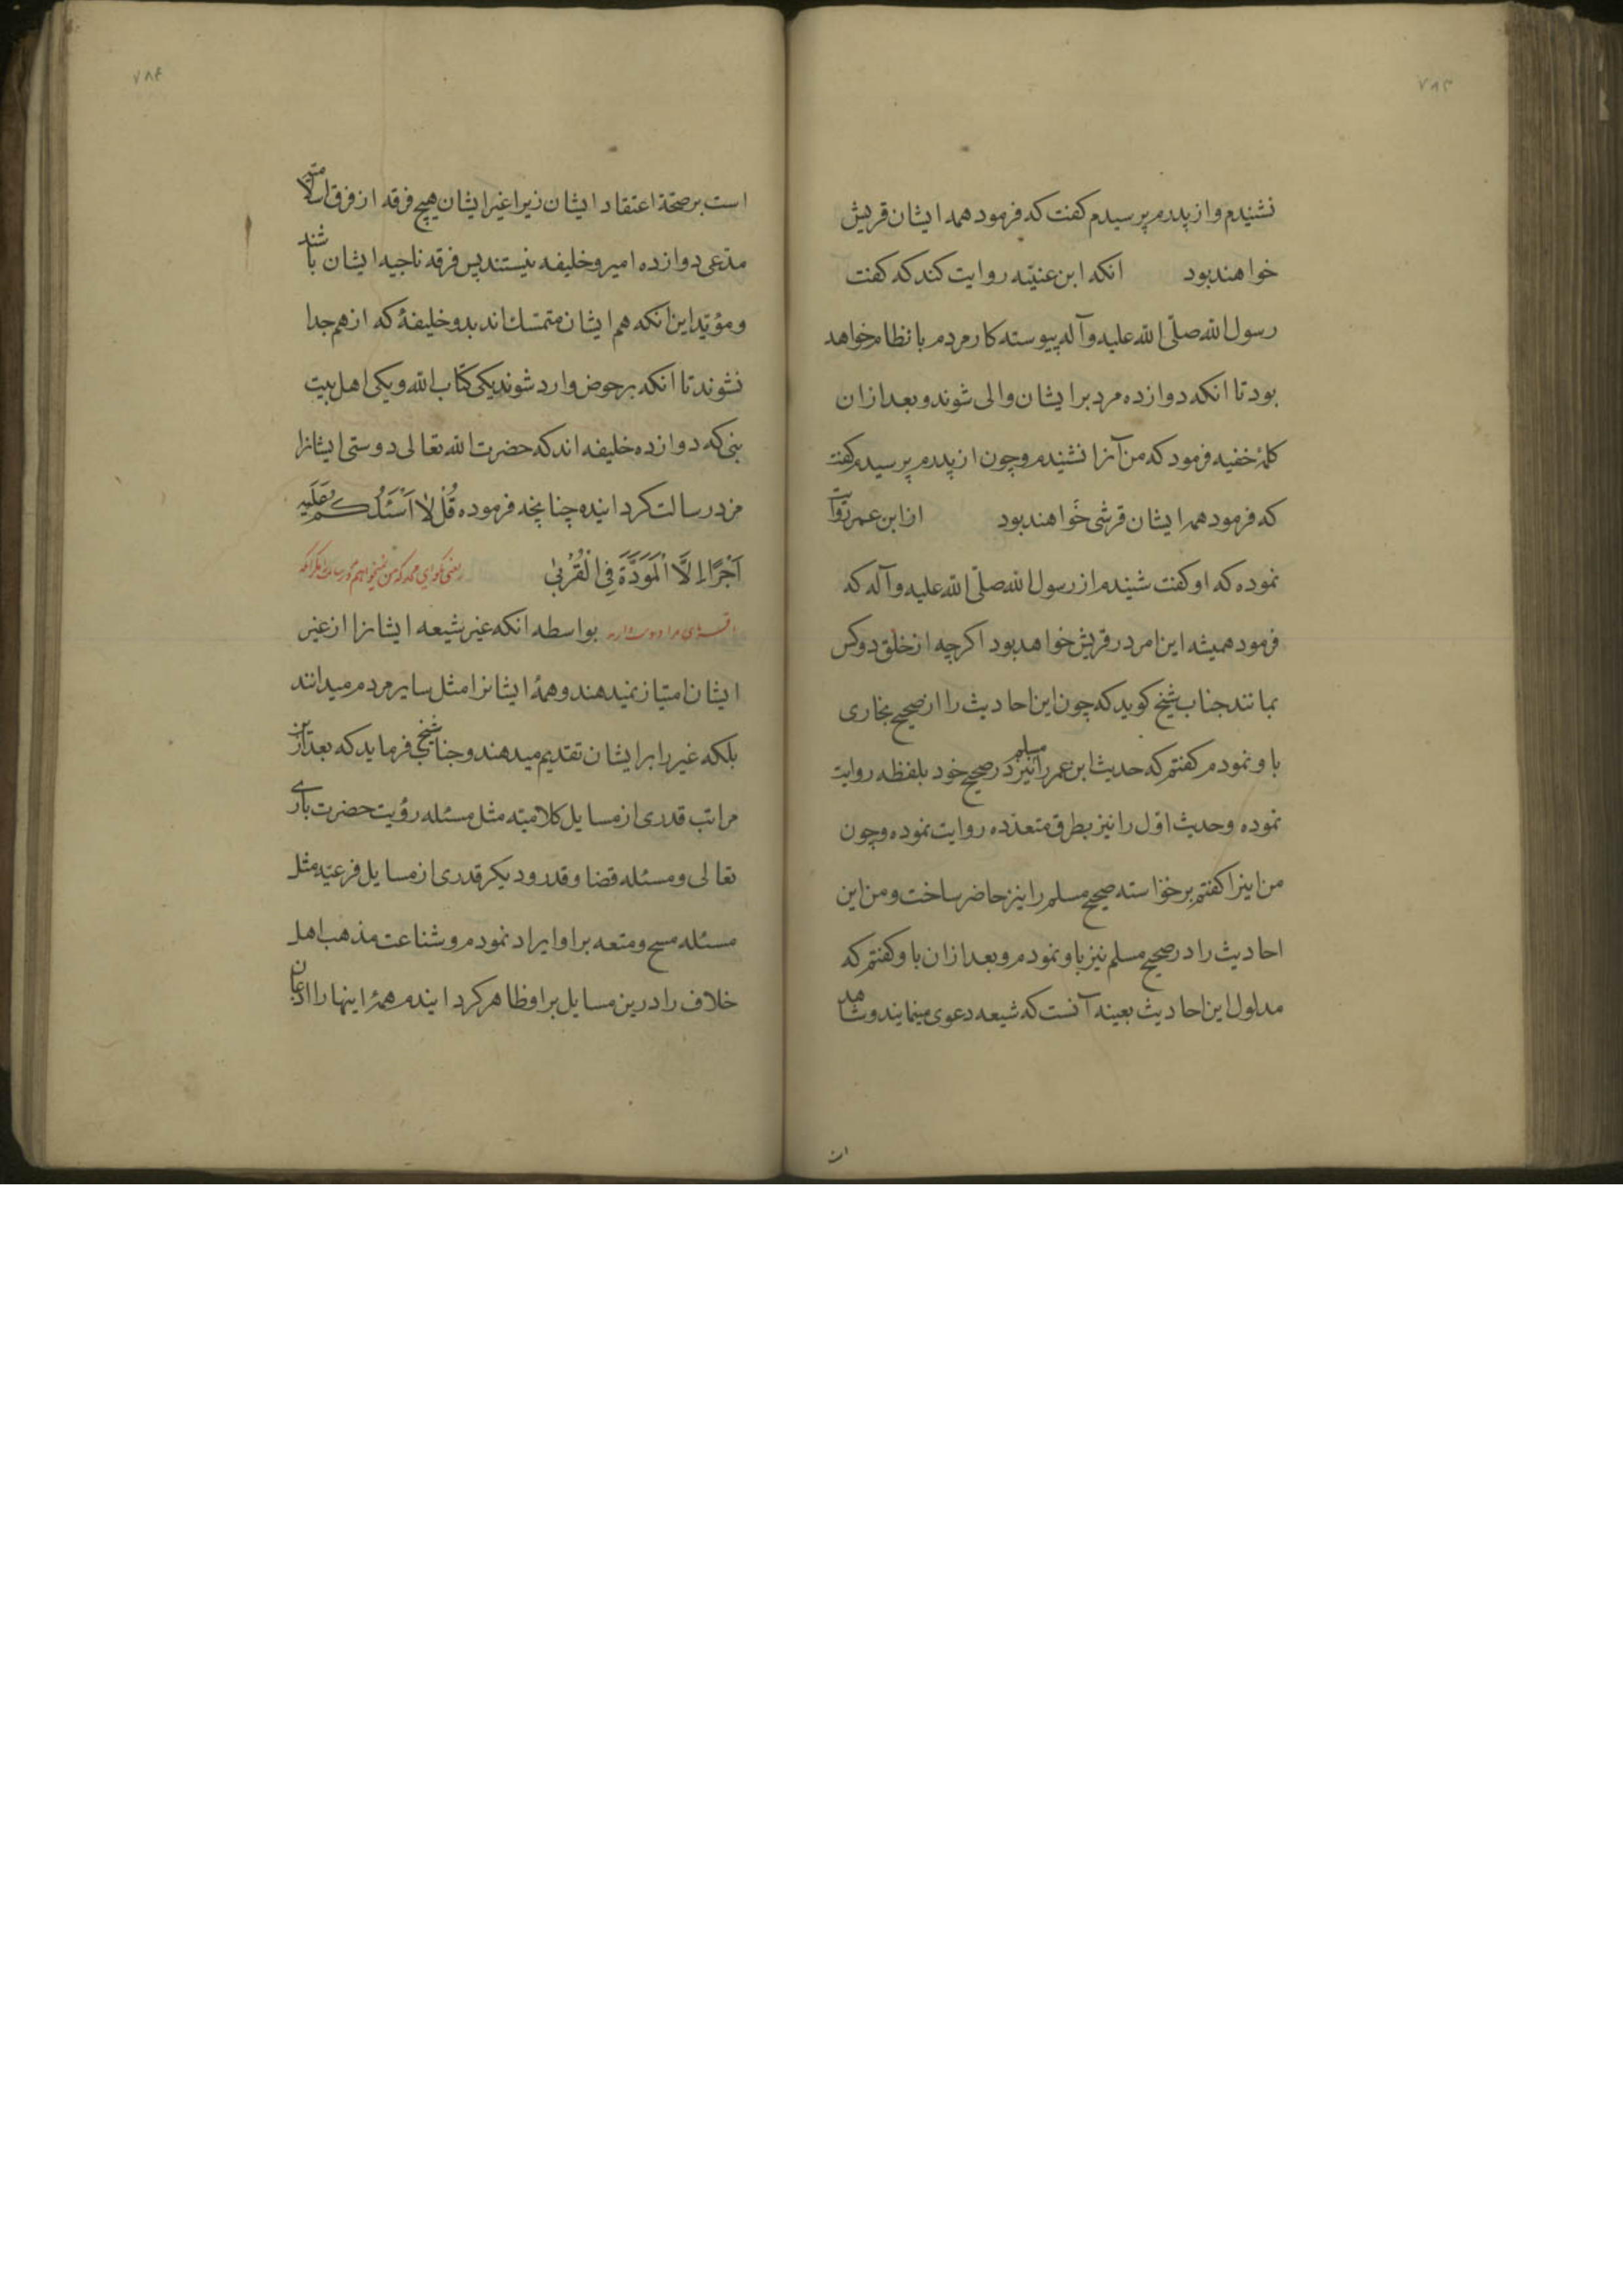 ۷۸۳
نشنیدم و از پدرم پرسیدم کفت که فرمود همه ایشان قریش
خواهند بود انکه ابن عنیّه روایت کند که کفت
رسول الله صلّی الله علیه و آله پیوسته کار مردم با نظام خواهد
بود تا انکه دوازده مرد بر ایشان والی شوند و بعد از ان
کلمهٔ خفیه فرمود که من آنرا نشنیدم و چون از پدرم پرسیدم کفت
که فرمود همه ایشان قرشی خواهند بود از ابن عمر روایت
نموده که او کفت شنیدم از رسول الله صلّی الله علیه و آله که
فرمود همیشه این امر در قریش خواهد بود اکرچه از خلق دو کس
بمانند جناب شیخ کوید که چون این احادیث را از صحیح بخاری
باو نمودم کفتم که حدیث ابن عمر را مسلم نیز در صحیح خود بلفظه روایت
نموده و حدیث اوّل را نیز بطرق متعدّده روایت نموده و چون
من اینرا کفتم برخواسته صحیح مسلم را نیز حاضر ساخت و من این
احادیث را در صحیح مسلم نیز باو نمودم و بعد از ان باو کفتم که
مدلول این احادیث بعینه آنست که شیعه دعوی مینمایند و شاهد
۷۸۴
است بر صحّة اعتقاد ایشان زیرا غیر ایشان هیچ فرقه از فرق اسلامیّه
مدّعی دوازده امیر و خلیفه نیستند پس فرقه ناجیه ایشان باشند
و مؤیّد این انکه هم ایشان متمسّک اند بدو خلیفهٔ که از هم جدا
نشوند تا انکه بر حوض وارد شوند یکی کتاب الله و یکی اهل بیت
نبی که دوازده خلیفه اند که حضرت الله تعالی دوستی ایشانرا
مزد رسالت کردانیده چنانچه فرموده قُلْ لا اَسْئَلُكُم عَلَیهِ
اَجْرًا اِلَّا الْمَوَدَّةَ فِی الْقُرْبیٰ یعنی بکو ای محمد که من نمیخواهم مزد رسالت مکر انکه
اقربای مرا دوست دارید بواسطه انکه غیر شیعه ایشانرا از غیر
ایشان امتیاز نمیدهند و همهٔ ایشانرا مثل سایر مردم میدانند
بلکه غیر را بر ایشان تقدیم میدهند و جناب شیخ فرماید که بعد از این
مراتب قدری از مسایل کلامیّه مثل مسئله رؤیت حضرت باری
تعالی و مسئله قضا و قدر و دیکر قدری از مسایل فرعیّه مثل
مسئله مسح و متعه بر او ایراد نمودم و شناعت مذهب اهل
خلاف را درین مسایل بر او ظاهر کردانیدم همهٔ اینها را اذعان